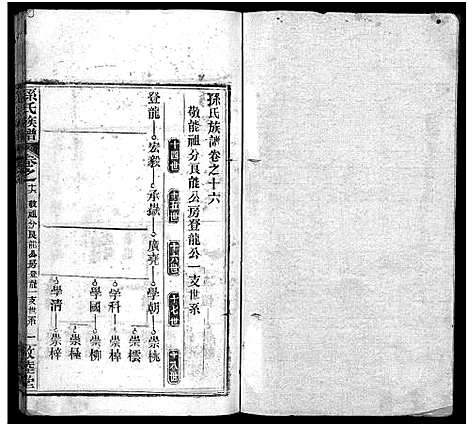 孫氏族譜卷之十六
敬能祖分良能公房登龍公一支世系
十四世 十五世 十六世 十七世 十八世
登龍 宏毅 承嶽 廣堯 學朝 崇桃
崇檽
學科 崇樟
學國 崇柳
崇極
學清 崇梓
孫氏族譜 卷之十六 敬祖分良能公房登龍一支世系 一 敦睦堂